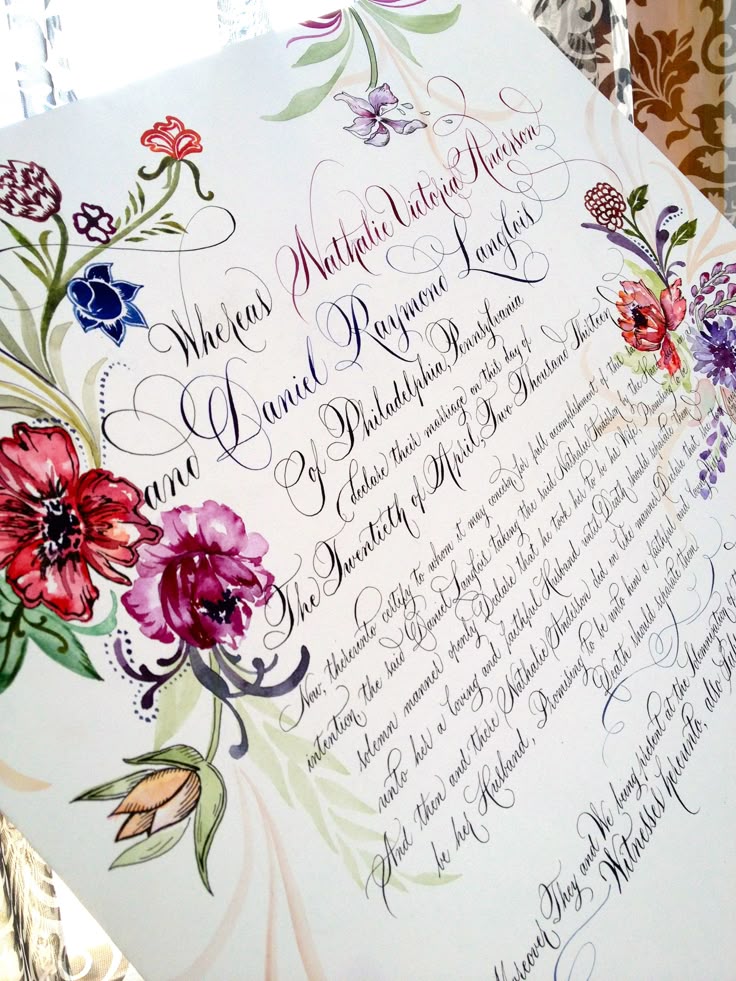 Whereas Nathalie Victoria Anderson
and Daniel Raymond Langlois
Of Philadelphia, Pennsylvania
declare their marriage on this day of
The Twentieth of April, Two Thousand Thirteen
Now, thereunto certify to whom it may concern, for full accomplishment of this
intention, the said Daniel Langlois taking the said Nathalie Anderson by the Hand
solemn manner openly Declare that he took her to be his Wife, Promising to
unto her a loving and faithful Husband until Death should separate them
And then and there Nathalie Anderson did in like manner Declare that she
be her Husband, Promising to be unto him a faithful and loving
Death should separate them
Moreover They and We being present at the Solemnization of
Witnesses hereunto, also